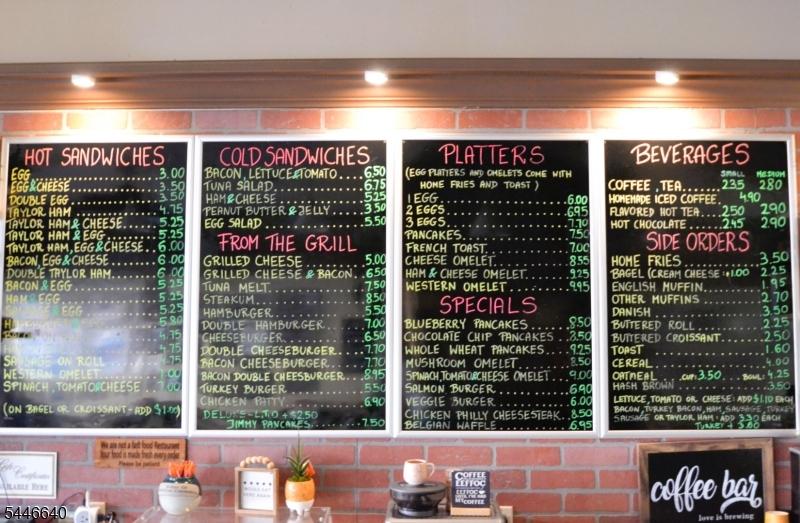 HOT SANDWICHES
EGG 3.00
EGG & CHEESE 3.50
DOUBLE EGG 3.50
TAYLOR HAM 4.75
TAYLOR HAM & CHEESE 5.25
TAYLOR HAM & EGG 5.25
TAYLOR HAM, EGG & CHEESE 6.00
BACON, EGG & CHEESE 6.00
DOUBLE TAYLOR HAM 6.00
BACON & EGG 5.25
HAM & EGG 5.25
SAUSAGE & EGG 5.25
5.80
4.75
4.75
SAUSAGE ON ROLL 4.75
WESTERN OMELET 7.00
SPINACH, TOMATO & CHEESE 7.00
(ON BAGEL OR CROISSANT - ADD $1.00)
COLD SANDWICHES
BACON, LETTUCE & TOMATO 6.50
TUNA SALAD 6.75
HAM & CHEESE 5.25
PEANUT BUTTER & JELLY 3.50
EGG SALAD 5.50
FROM THE GRILL
GRILLED CHEESE 5.00
GRILLED CHEESE & BACON 6.50
TUNA MELT 7.50
STEAKUM 8.50
HAMBURGER 5.50
DOUBLE HAMBURGER 7.00
CHEESEBURGER 6.50
DOUBLE CHEESEBURGER 7.70
BACON CHEESEBURGER 7.70
BACON DOUBLE CHEESBURGER 8.95
TURKEY BURGER 5.50
CHICKEN PATTY 6.90
DELUXE - L,T,O + $2.50
JIMMY PANCAKES 7.50
PLATTERS
(EGG PLATTERS AND OMELETS COME WITH
HOME FRIES AND TOAST)
1 EGG 6.00
2 EGGS 6.95
3 EGGS 7.70
PANCAKES 7.50
FRENCH TOAST 7.00
CHEESE OMELET 8.55
HAM & CHEESE OMELET 9.25
WESTERN OMELET 9.95
SPECIALS
BLUEBERRY PANCAKES 8.50
CHOCOLATE CHIP PANCAKES 8.50
WHOLE WHEAT PANCAKES 9.25
MUSHROOM OMELET 8.50
SPINACH, TOMATO & CHEESE OMELET 9.00
SALMON BURGER 6.90
VEGGIE BURGER 6.00
CHICKEN PHILLY CHEESESTEAK 8.50
BELGIAN WAFFLE 6.95
BEVERAGES
SMALL MEDIUM
COFFEE, TEA 2.35 2.80
HOMEMADE ICED COFFEE 4.90
FLAVORED HOT TEA 2.50 2.90
HOT CHOCOLATE 2.45 2.90
SIDE ORDERS
HOME FRIES 3.50
BAGEL (CREAM CHEESE +1.00 2.25
ENGLISH MUFFIN 1.95
OTHER MUFFINS 2.70
DANISH 3.50
BUTTERED ROLL 2.25
BUTTERED CROISSANT 2.50
TOAST 1.60
CEREAL 4.00
OATMEAL CUP: 3.50 BOWL: 4.25
HASH BROWN 3.50
LETTUCE, TOMATO OR CHEESE: ADD $1.10 EACH
BACON, TURKEY BACON, HAM, SAUSAGE, TURKEY
SAUSAGE OR TAYLOR HAM: ADD 3.30 EACH
TURKEY + 3.80
We are not a fast food Restaurant
Your food is made fresh every order
Please be patient
Gift Certificates
AVAILABLE HERE
COFFEE
coffee bar
love is brewing
5446640